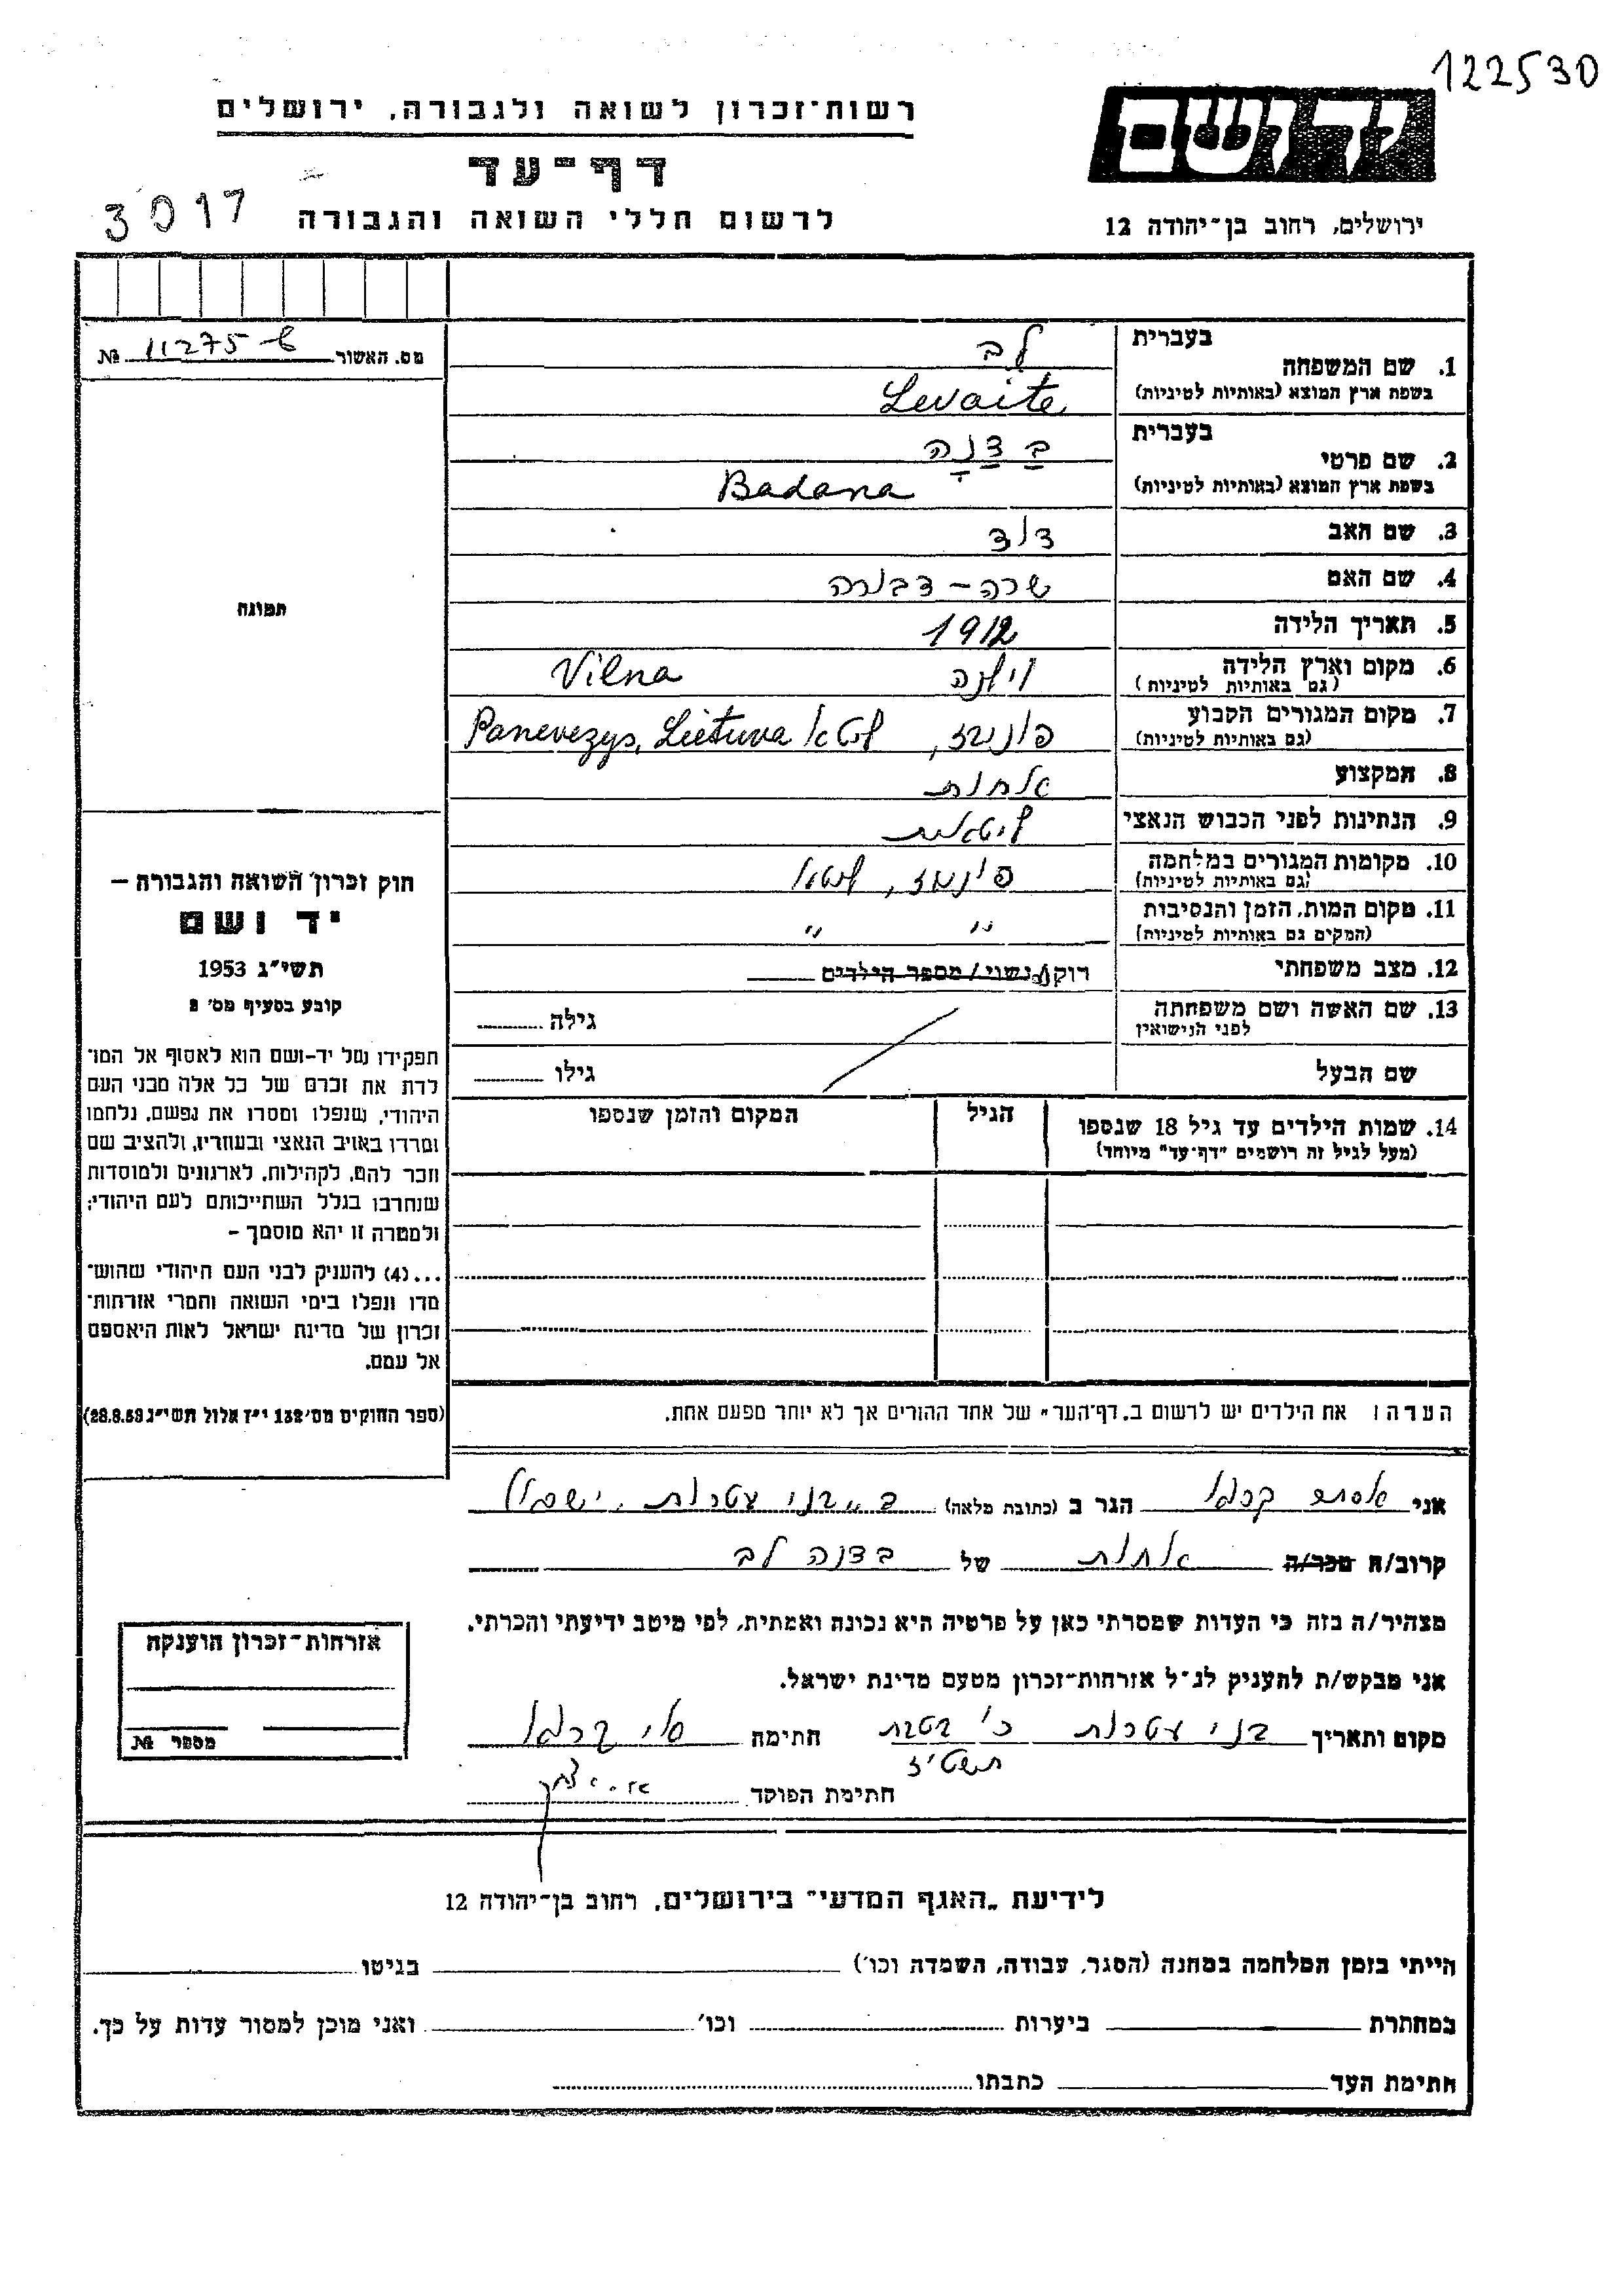 122530
רשות־זכרון לשואה ולגבורה, ירושלים
יד ושם
דף־עד
3017
לרשום חללי השואה והגבורה
ירושלים, רחוב בן־יהודה 12
מס. האשור № 11275-ש
בעברית
1. שם המשפחה לב
בשפת ארץ המוצא (באותיות לטיניות) Levaite
בעברית
2. שם פרטי בַּדַנָה
בשפת ארץ המוצא (באותיות לטיניות) Badana
3. שם האב דוד
4. שם האם שרה-דבורה
5. תאריך הלידה 1912
6. מקום וארץ הלידה וילנה Vilna
(גם באותיות לטיניות)
7. מקום המגורים הקבוע פוניבז, ליטא Panevezys, Lietuva
(גם באותיות לטיניות)
8. המקצוע אחות
9. הנתינות לפני הכבוש הנאצי ליטאית
10. מקומות המגורים במלחמה פוניבז, ליטא
(גם באותיות לטיניות)
11. מקום המות, הזמן והנסיבות " "
(המקום גם באותיות לטיניות)
12. מצב משפחתי רוק/ה נשוי/מספר הילדים
13. שם האשה ושם משפחתה גילה
לפני הנישואין
שם הבעל גילו
14. שמות הילדים עד גיל 18 שנספו הגיל המקום והזמן שנספו
(מעל לגיל זה רושמים "דף־עד" מיוחד)
תמונה
חוק זכרון השואה והגבורה –
יד ושם
תשי"ג 1953
קובע בסעיף מס' 2
תפקידו של יד-ושם הוא לאסוף אל המו־
לדת את זכרם של כל אלה מבני העם
היהודי, שנפלו ומסרו את נפשם, נלחמו
ומרדו באויב הנאצי ובעוזריו, ולהציב שם
וזכר להם, לקהילות, לארגונים ולמוסדות
שנחרבו בגלל השתייכותם לעם היהודי;
ולמטרה זו יהא מוסמך –
...(4) להעניק לבני העם היהודי שהוש־
מדו ונפלו בימי השואה והמרי אזרחות־
זכרון של מדינת ישראל לאות היאספם
אל עמם.
(ספר החוקים מס' 132 י"ז אלול תשי"ג 28.8.53)
הערה: את הילדים יש לרשום ב"דף־העד" של אחד ההורים אך לא יותר מפעם אחת.
אני אסתר הגר ב (כתובת מלאה) ב"בני עטרות, ישראל
קרוב/ה מכר/ה אחות של בדנה לב
מצהיר/ה בזה כי העדות שמסרתי כאן על פרטיה היא נכונה ואמתית, לפי מיטב ידיעתי והכרתי.
אני מבקש/ת להעניק לנ"ל אזרחות-זכרון מטעם מדינת ישראל.
מקום ותאריך בני עטרות כ' בטבת תשט"ז חתימה
חתימת הפוקד
אזרחות-זכרון הוענקה
מספר №
לידיעת "האגף המדעי" בירושלים, רחוב בן־יהודה 12
הייתי בזמן המלחמה במחנה (הסגר, עבודה, השמדה וכו') בגיטו
במחתרת ביערות וכו' ואני מוכן למסור עדות על כך.
חתימת העד כתבתו